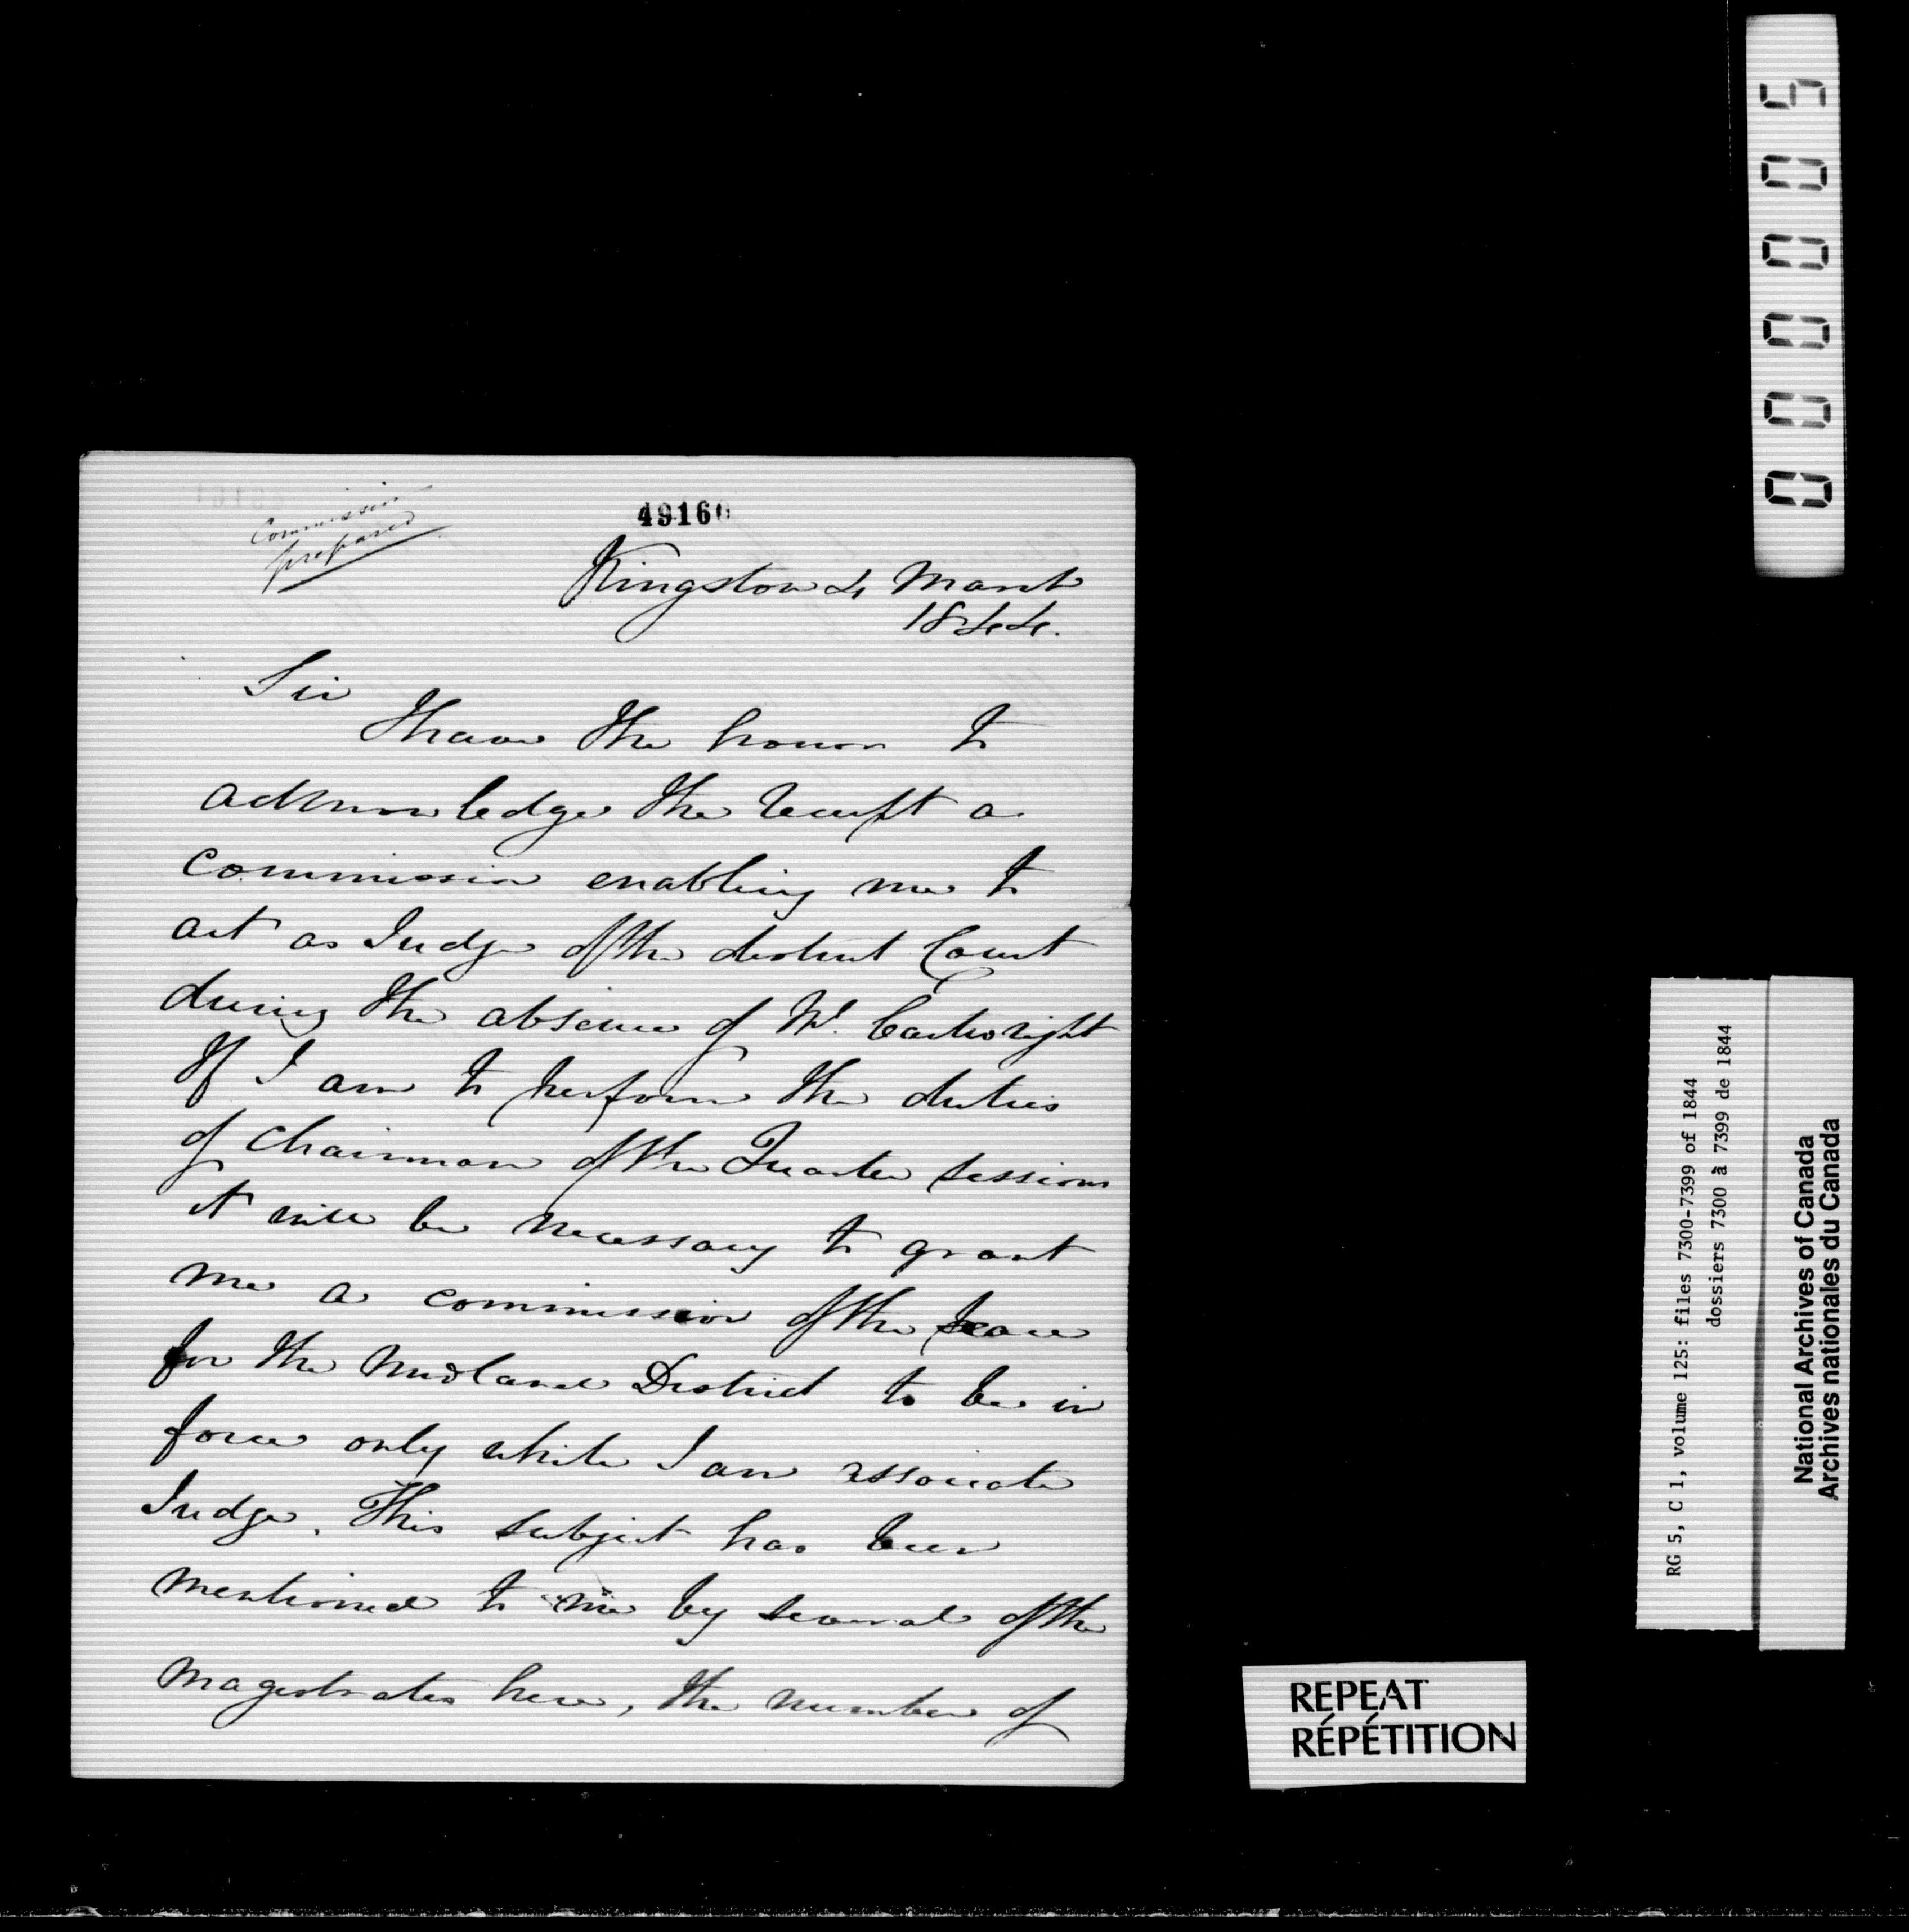 Commission
prepared
49160
Kingston 4 March
1844.
Sir
I have the honor to
acknowledge the receipt a
commission enabling me to
act as Judge of the district Court
during the absence of Mr. Cartwright
If I am to perform the duties
of Chairman of the Quarter sessions
it will be necessary to grant
me a commission of the peace
for the Midland District to be in
force only while I am associate
Judge. This subject has been
mentioned to me by several of the
magistrates here, the number of
000005
RG 5, C 1, volume 125: files 7300-7399 of 1844
dossiers 7300 à 7399 de 1844
National Archives of Canada
Archives nationales du Canada
REPEAT
RÉPÉTITION